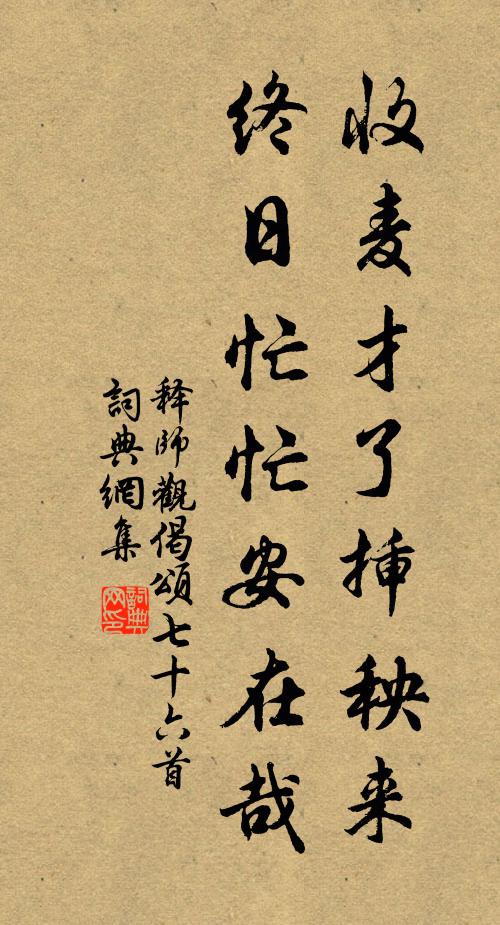 收麦才了挿秧来
终日忙忙安在哉
释师觀偈頌七十六首
詞典網集
詞典網印